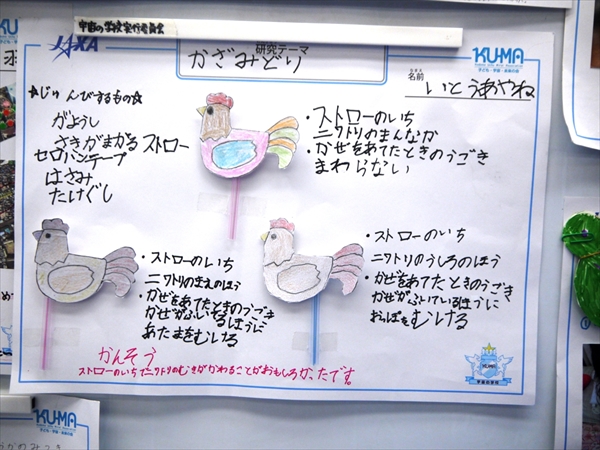 宇宙の学校実行委員会
JAXA
研究テーマ
かざみどり
KU-MA
子ども・宇宙・未来の会
名前
いとうあやね
☆じゅんびするもの☆
がようし
さきがまがるストロー
セロハンテープ
はさみ
たけぐし
・ストローのいち
ニワトリのまんなか
・かぜをあてたときのうごき
まわらない
・ストローのいち
ニワトリのまえのほう
・かぜをあてたときのうごき
かぜがふいてるほうに
あたまをむける
・ストローのいち
ニワトリのうしろのほう
・かぜをあてたときのうごき
かぜがふいているほうに
おっぽをむける
かんそう
ストローのいちでニワトリのむきがかわることがおもしろかったです。
KU-MA
宇宙の学校
KU-MA